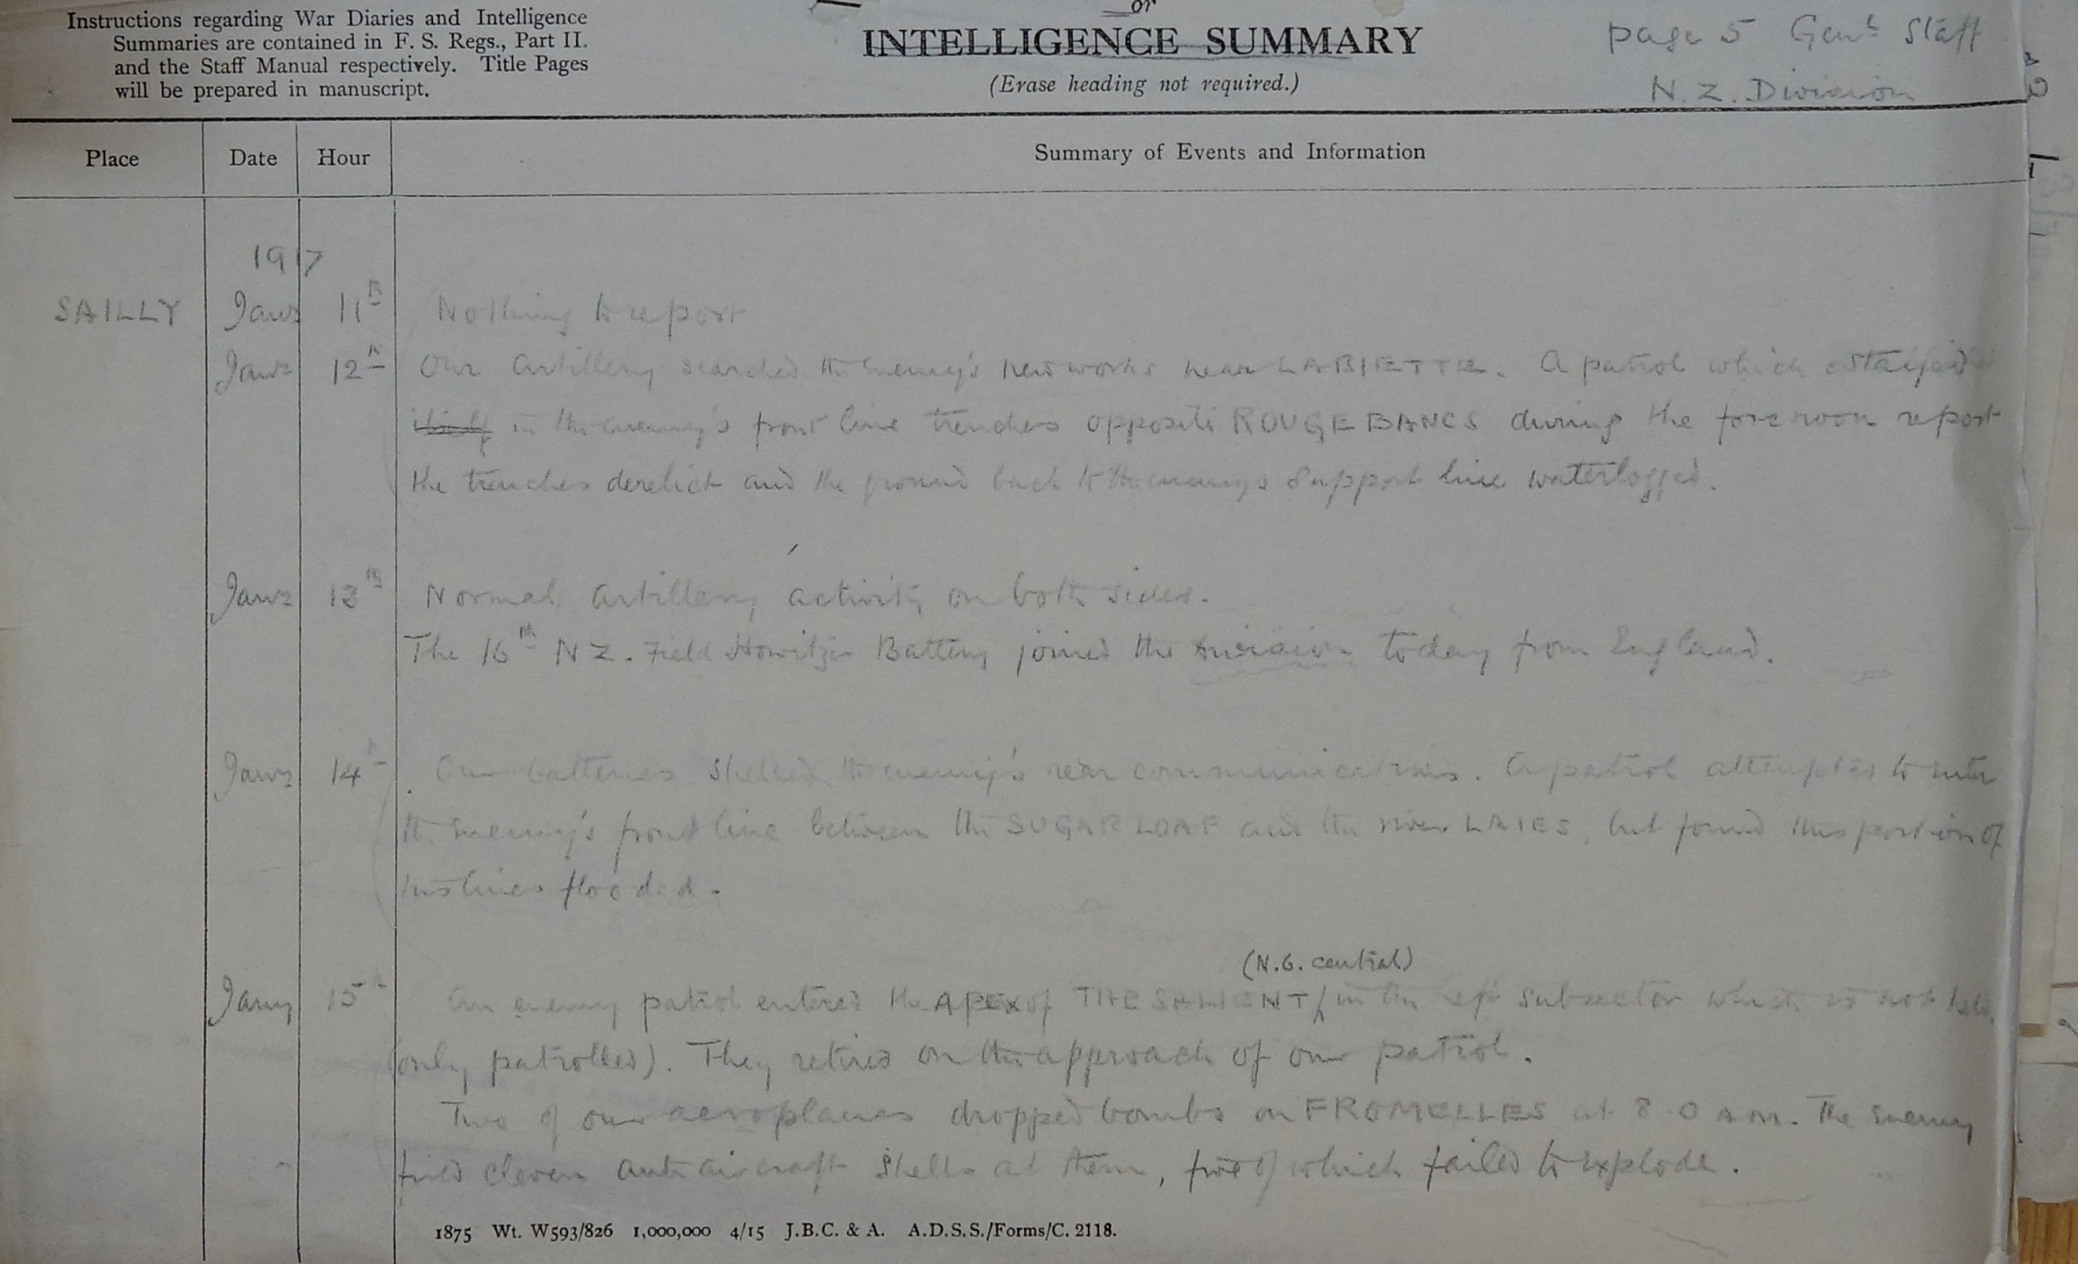 Instructions regarding War Diaries and Intelligence
Summaries are contained in F. S. Regs., Part II.
and the Staff Manual respectively. Title Pages
will be prepared in manuscript.
or
INTELLIGENCE SUMMARY
(Erase heading not required.)
page 5 Genl Staff
N. Z. Division
Place Date Hour Summary of Events and Information
1917
SAILLY Jany 11th Nothing to report
Jany 12th Our Artillery searched the enemy's new works near LABIETTE. A patrol which stayed
itself in the enemy's front line trenches opposite ROUGE BANCS during the forenoon report
the trenches derelict and the ground back to the enemy's support line waterlogged.
Jany 13th Normal artillery activity on both sides.
The 16th N Z. Field Howitzer Battery joined the division today from England.
Jany 14th Our batteries shelled the enemy's rear communications. A patrol attempted to enter
the enemy's front line between the SUGAR LOAF and the river LAIES, but found this portion of
his lines flooded.
(N.6. central)
Jany 15th An enemy patrol entered the APEX of THE SALIENT / in the left subsector which is not held
(only patrolled). They retired on the approach of our patrol.
Two of our aeroplanes dropped bombs on FROMELLES at 8-0 AM. The enemy
fired eleven anti aircraft shells at them, five of which failed to explode.
1875 Wt. W593/826 1,000,000 4/15 J.B.C. & A. A.D.S.S./Forms/C. 2118.